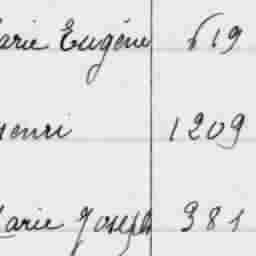 arie Eugène 619
enri 1209
arie Joseph 381